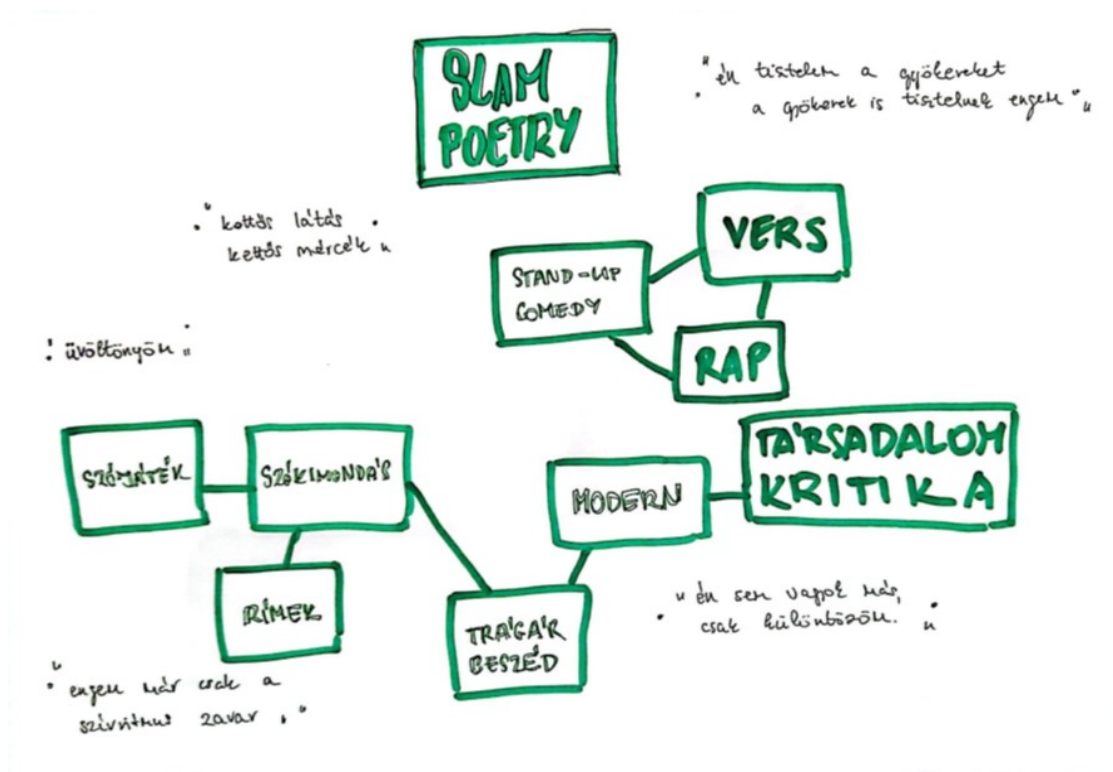 SLAM
POETRY
"én tisztelem a gyökereket
a gyökerek is tisztelnek engem"
"kettős látás
kettős mércék"
VERS
STAND-UP
COMEDY
RAP
"üvöltönyöm"
TÁRSADALOM
KRITIKA
SZÓJÁTÉK
SZÓKIMONDÁS
MODERN
RÍMEK
TRÁGÁR
BESZÉD
"én sem vagyok más,
csak különbözöm."
"engem már csak a
szívritmus zavar."